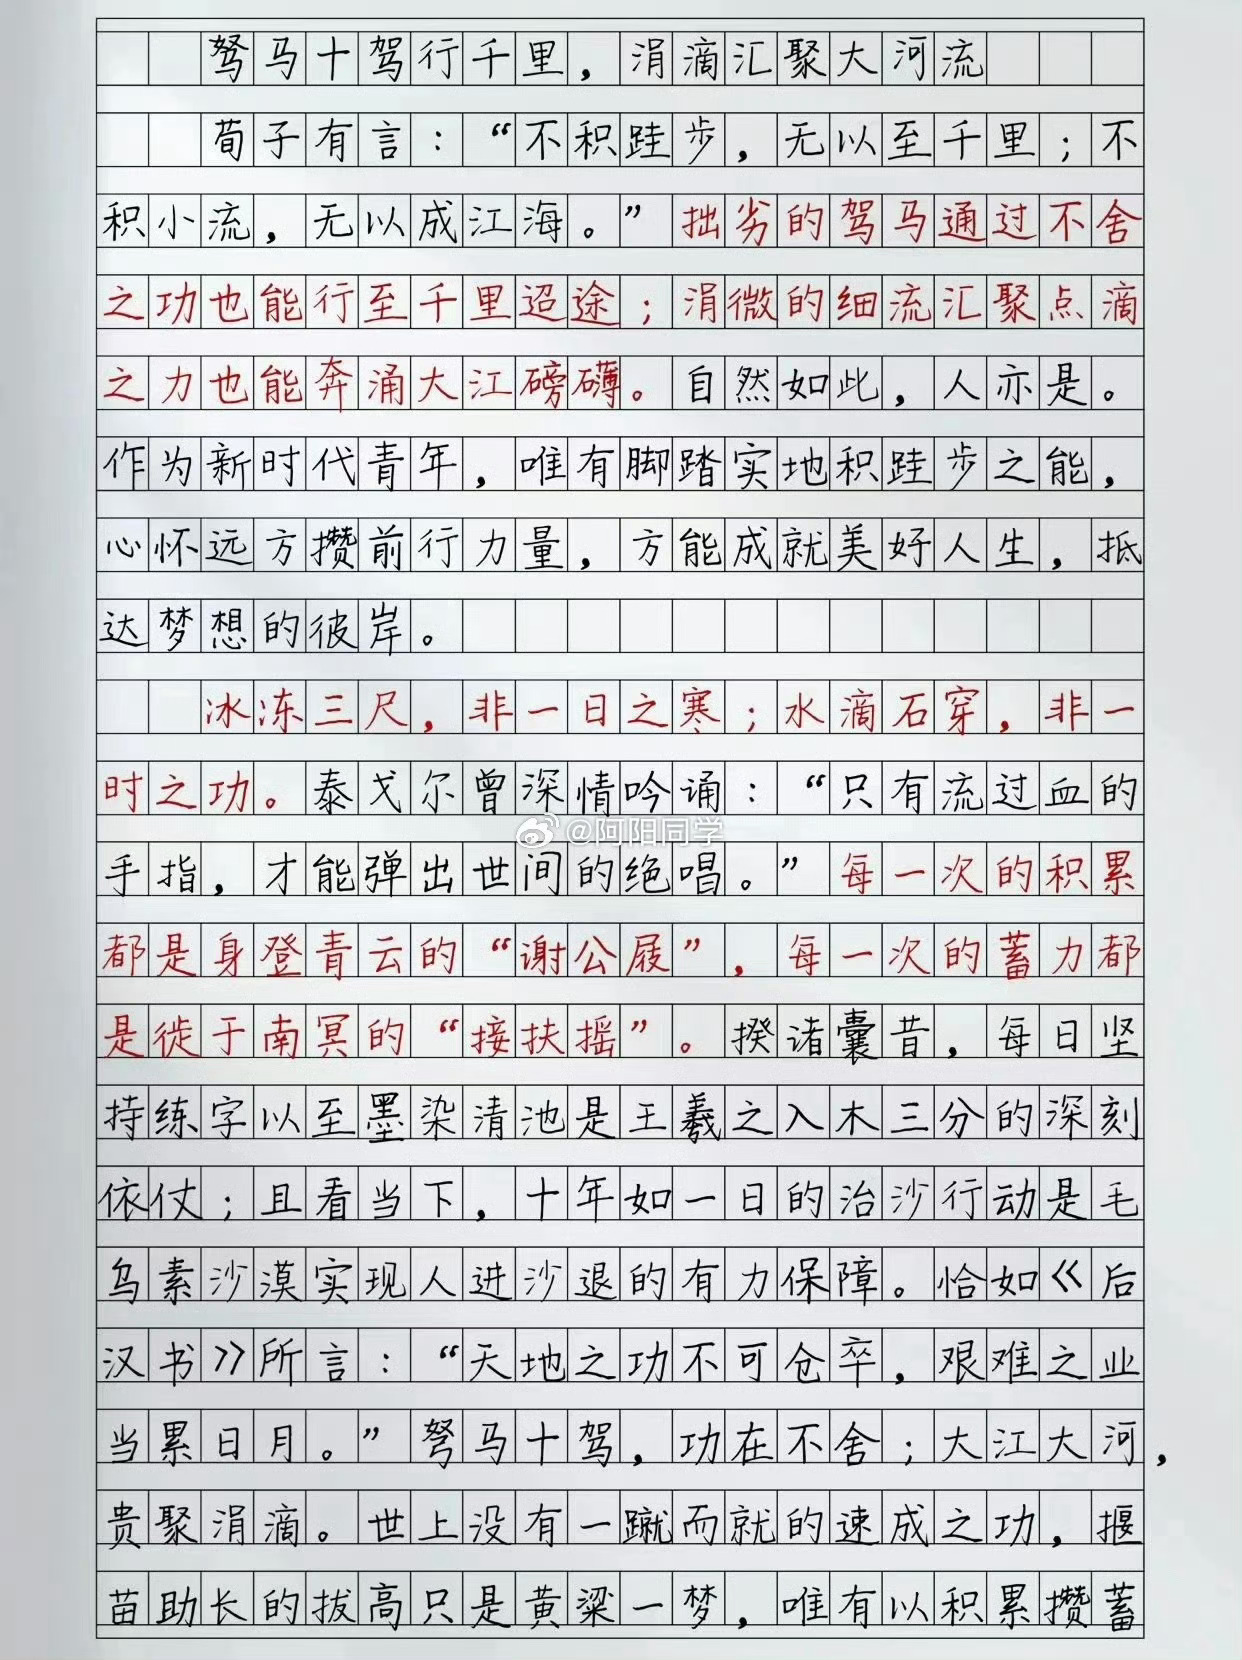 驽马十驾行千里，涓滴汇聚大河流
荀子有言：“不积跬步，无以至千里；不
积小流，无以成江海。”拙劣的驾马通过不舍
之功也能行至千里迢途；涓微的细流汇聚点滴
之力也能奔涌大江磅礴。自然如此，人亦是。
作为新时代青年，唯有脚踏实地积跬步之能，
心怀远方攒前行力量，方能成就美好人生，抵
达梦想的彼岸。
冰冻三尺，非一日之寒；水滴石穿，非一
时之功。泰戈尔曾深情吟诵：“只有流过血的
@阿阳同学
手指，才能弹出世间的绝唱。”每一次的积累
都是身登青云的“谢公屐”，每一次的蓄力都
是徙于南冥的“接扶摇”。揆诸囊昔，每日坚
持练字以至墨染清池是王羲之入木三分的深刻
依仗；且看当下，十年如一日的治沙行动是毛
乌素沙漠实现人进沙退的有力保障。恰如《后
汉书》所言：“天地之功不可仓卒，艰难之业
当累日月。”驽马十驾，功在不舍；大江大河，
贵聚涓滴。世上没有一蹴而就的速成之功，揠
苗助长的拔高只是黄粱一梦，唯有以积累攒蓄